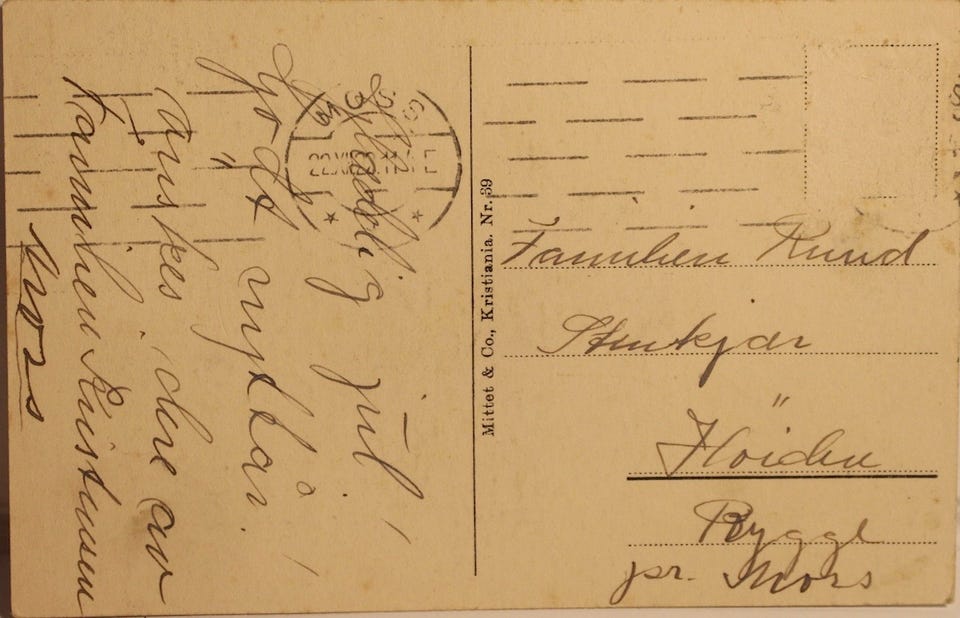 Glædelig jul!
godt nyttår!
ønskes dere av
Familien Kristensen
Moss
Mittet & Co., Kristiania. Nr. 39
Familien Ruud
Stenkjær
Höiden
Rygge
pr. Moss